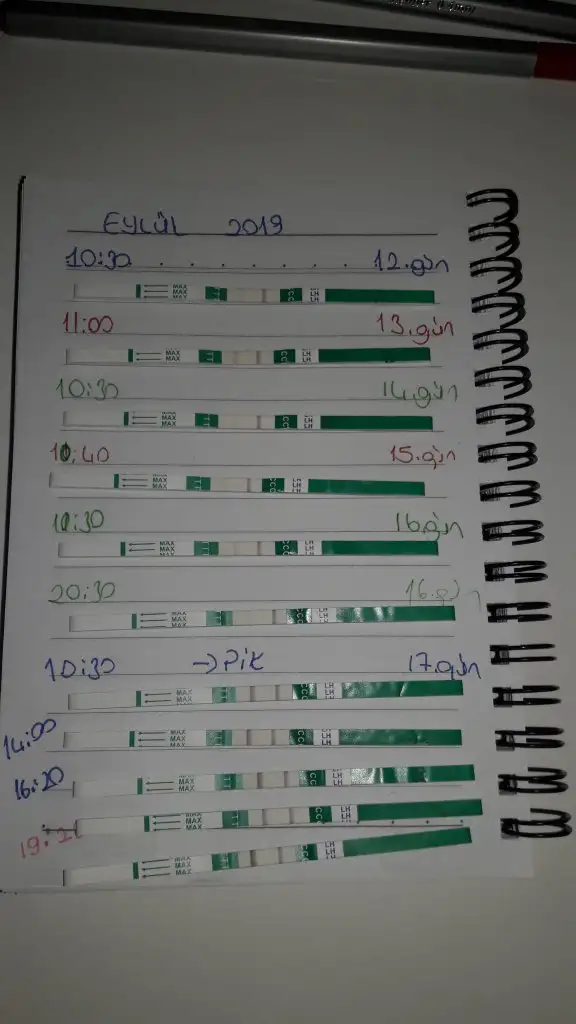 EYLÜL 2019
10:30 12.gün
MAX MAX MAX TT CCC LH LH
11:00 13.gün
MAX MAX TT CC LH LH
10:30 14.gün
MAX MAX TT CC LH LH
10:40 15.gün
MAX MAX MAX TT CCC LH LH
16.gün
MAX MAX MAX TT CCC LH LH
20:30 16.gün
MAX MAX MAX TT CC LH LH
10:30 →Pik 17.gün
MAX MAX TT CCC LH LH
14:00
MAX MAX MAX TT CCC LH LH
16:20
MAX MAX TT CCC LH LH
MAX MAX TT CC LH LH
MAX MAX TT CCC LH LH